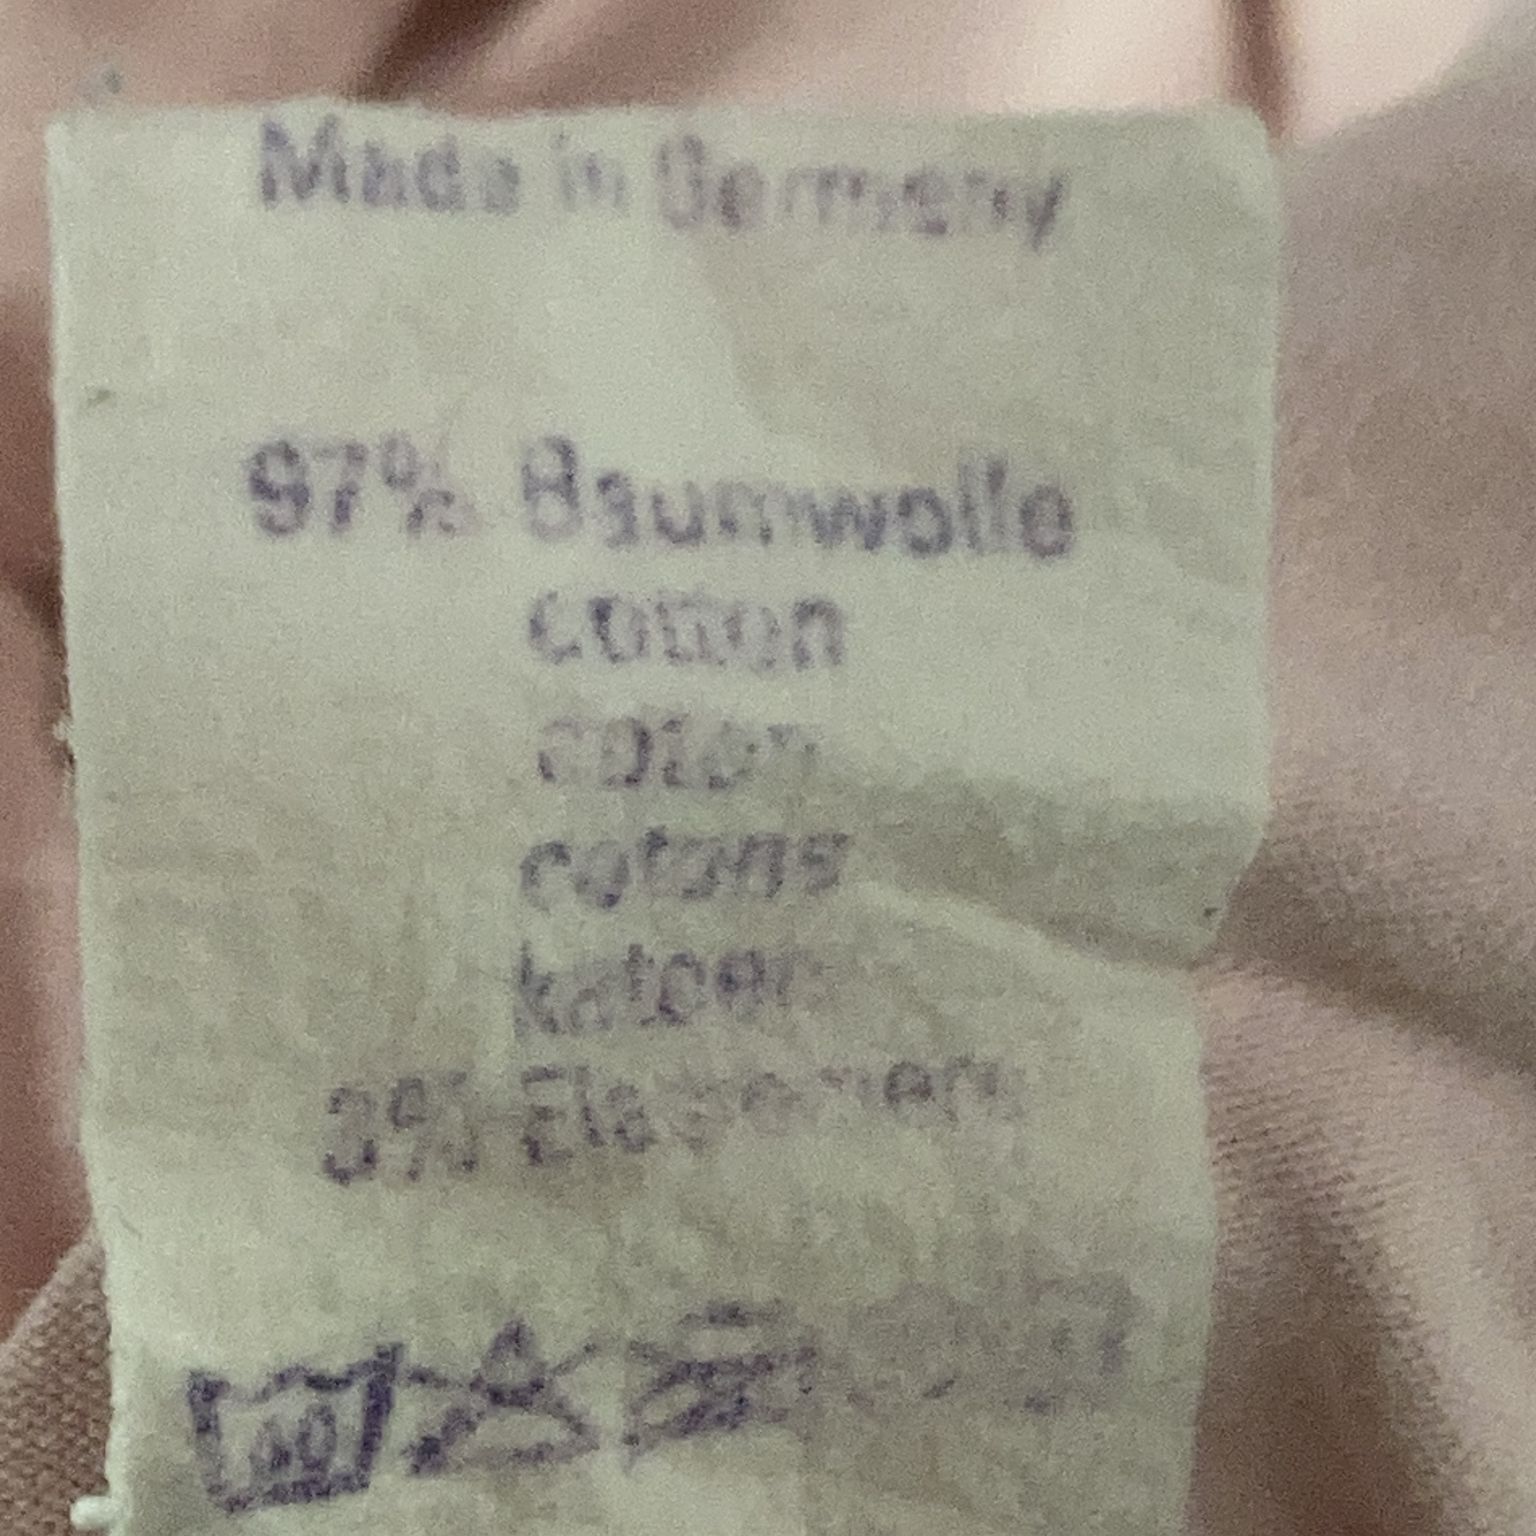 Made in Germany
97% Baumwolle
cotton
coton
cotone
katoen
3%